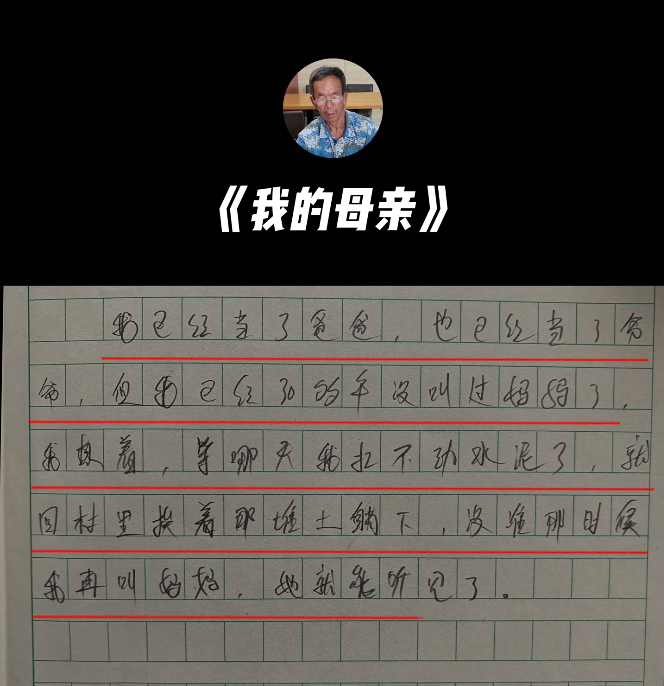 《我的母亲》
我已经当了爸爸，也已经当了爷
爷，但我已经30多年没叫过妈妈了，
我想着，等哪天我扛不动水泥了，就
回村里挨着那堆土躺下，没准那时候
我再叫妈妈，她就能听见了。